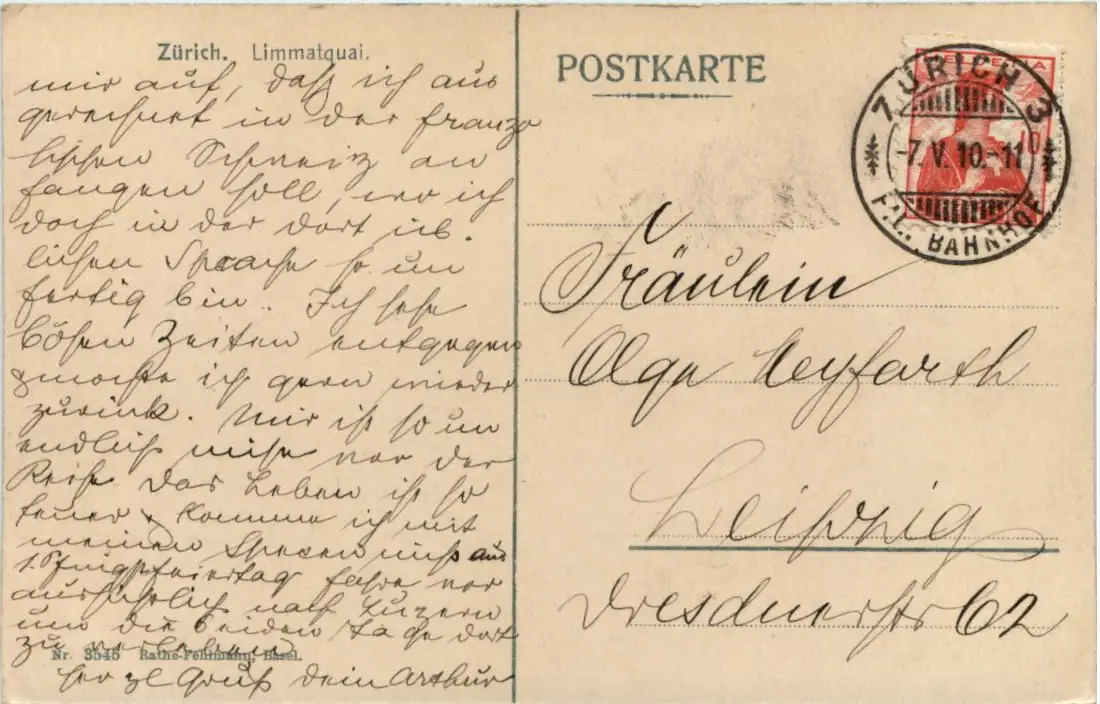 Zürich. Limmatquai.
mir auf, daß ich aus
gerechnet in der franzö
sischen Schweiz an
fangen soll, wo ich
doch in der dort üb.
lichen Sprache so un
fertig bin. Ich sehe
bösen Zeiten entgegen
& möchte ich gern wieder
zurück. Mir ist so un
endlich mies vor der
Reise. Das Leben ist so
teuer & komme ich mit
meinen Spesen nicht aus
1. Pfingstfeiertag fahre vor
aussichtlich nach Luzern
um die beiden Tage dort
zu verleben
herzl Gruß Dein Arthur
Nr. 3545 Rathe-Fehlmann, Basel.
POSTKARTE
HELVETIA
10
ZÜRICH 3
-7.V.10.-11
FIL. BAHNHOF
Fräulein
Olga Heyfarth
Leipzig
Dresdnerstr 62